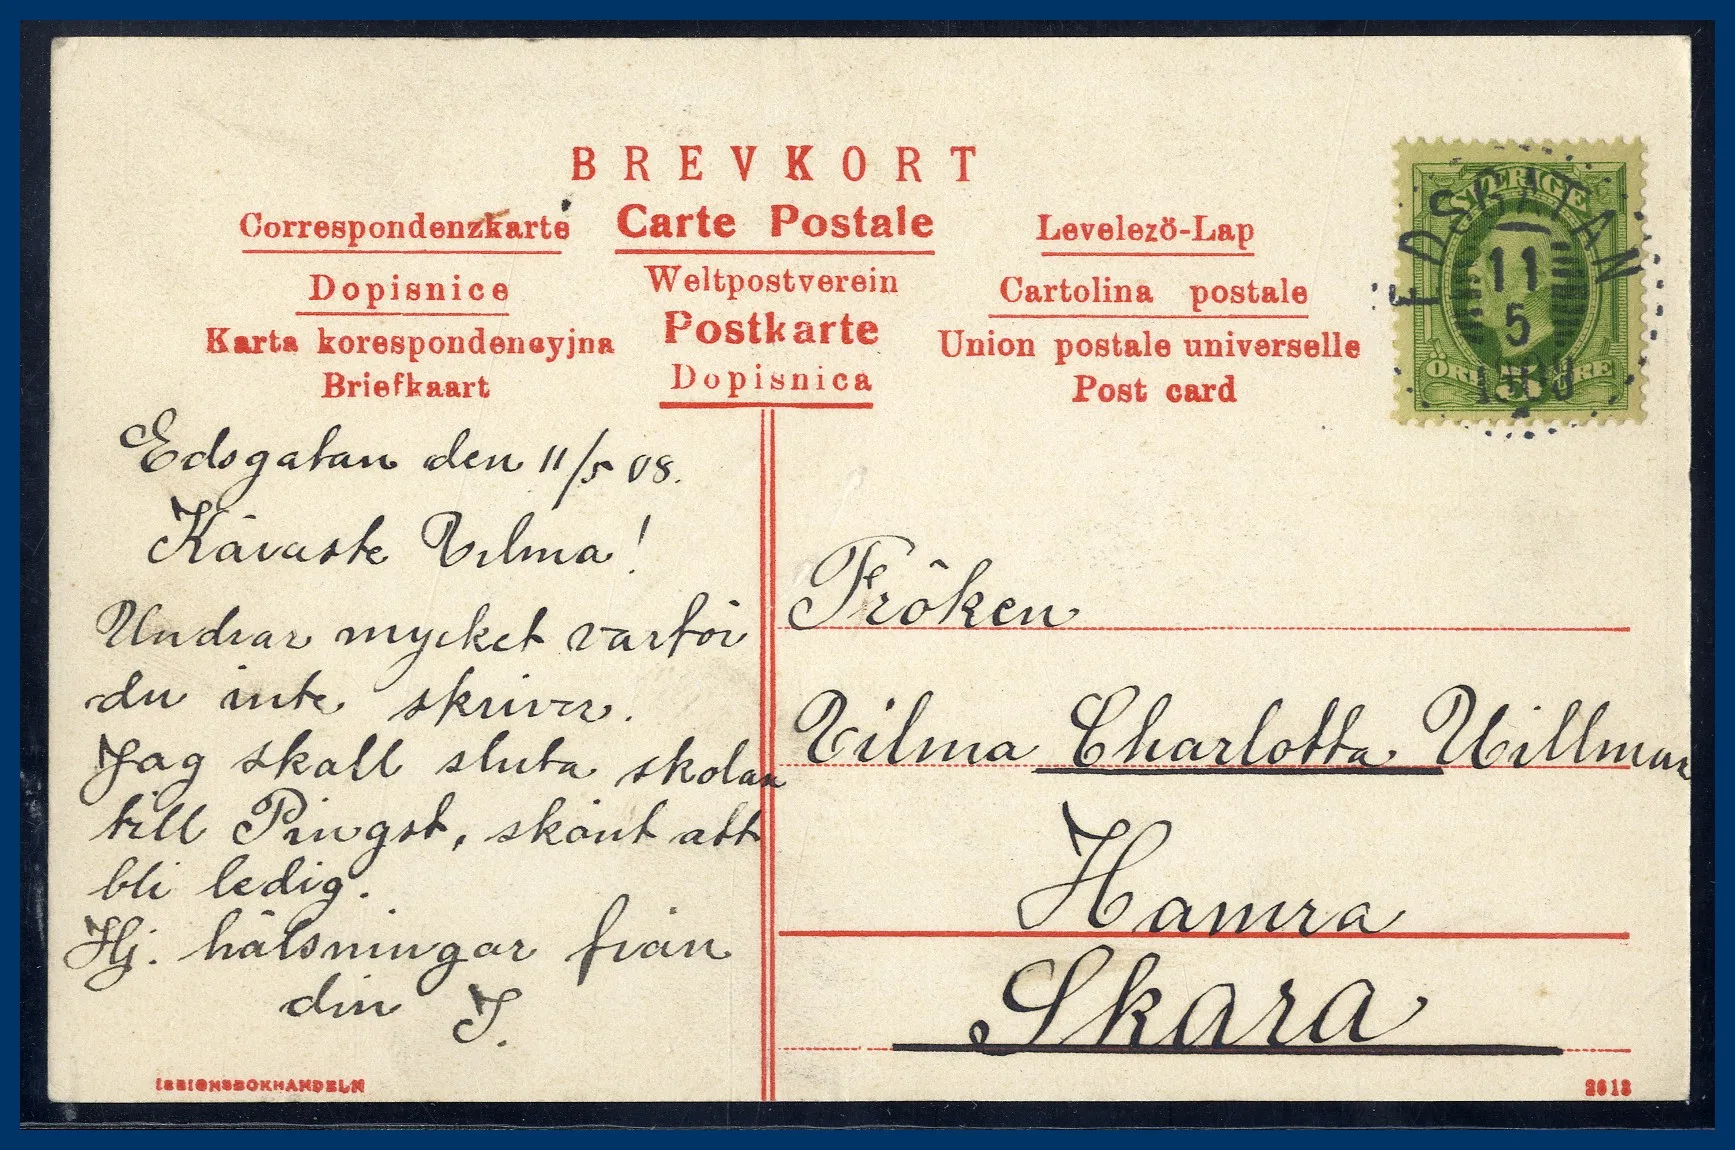 BREVKORT
Correspondenzkarte
Carte Postale
Levelező-Lap
Dopisnice
Weltpostverein
Cartolina postale
Karta korespondencyjna
Postkarte
Union postale universelle
Briefkaart
Dopisnica
Post card
SVERIGE
ÖRE 5 ÖRE
EDSGATAN
11
5
Edsgatan den 11/5 08.
Käraste Vilma!
Undrar mycket varför
du inte skriver.
Jag skall sluta skolan
till Pingst, skönt att
bli ledig.
Hj. hälsningar från
din J.
Fröken
Vilma Charlotta Willman
Hamra
Skara
2613